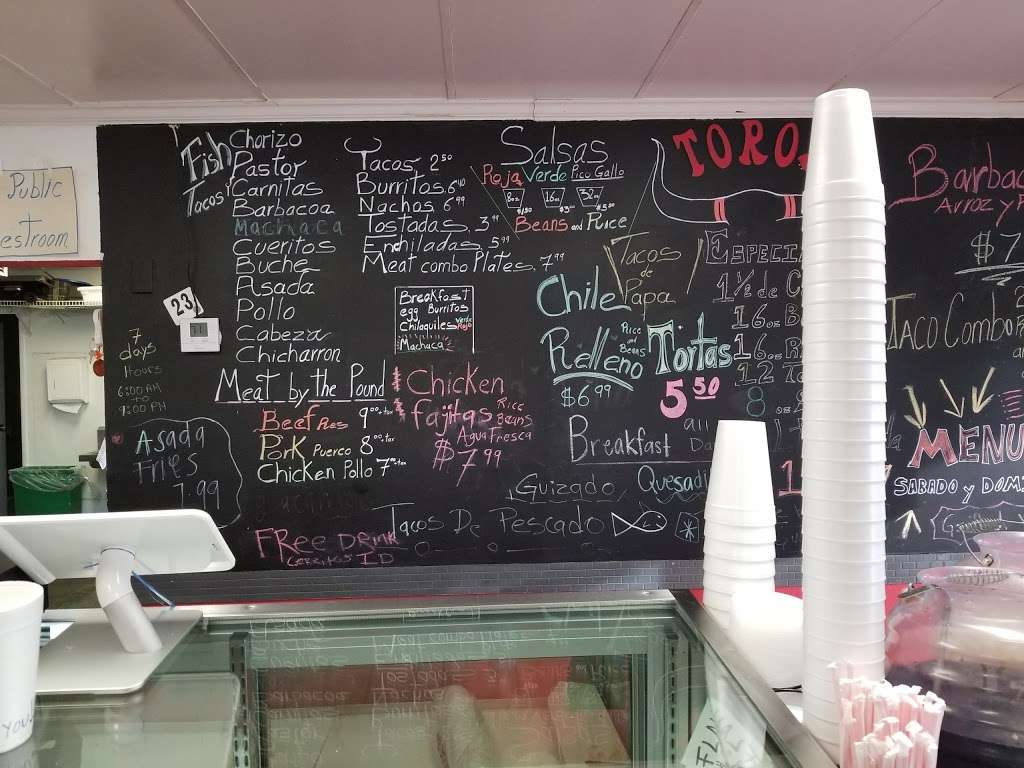 Public
estroom
Fish
Tacos
Chorizo
Pastor
Carnitas
Barbacoa
Machaca
Cueritos
Buche
Asada
Pollo
Cabeza
Chicharron
23
7
days
Hours
6:00 AM
TO
9:00 PM
Asada
Fries
7.99
Tacos 2.50
Burritos
Nachos 6.99
Tostadas 3.99
Enchiladas 5.99
Meat combo Plates 7.99
Breakfast
egg Burritos
Chilaquiles verde Rojo
Machaca
Meat by the Pound
Beef Res 9
Pork Puerco 8
Chicken Pollo 7
Chicken
fajitas Rice
Beans
Agua Fresca
$7.99
FRee DRink
Cerritos ID
Salsas
Roja Verde Pico Gallo
8oz 16oz 32oz
Beans and Rice
Tacos
de
Papa
Chile
Relleno
Rice
and
Beans
$6.99
Tortas
5.50
Breakfast all
Da
Guizado, Quesadi
Tacos De Pescado
TORO
Especi
1½ de C
16oz B
16oz R
12 To
8
Barbac
Arroz y
$7
Taco Combo
MENU
SABADO y DOMI
YOU
FLAN